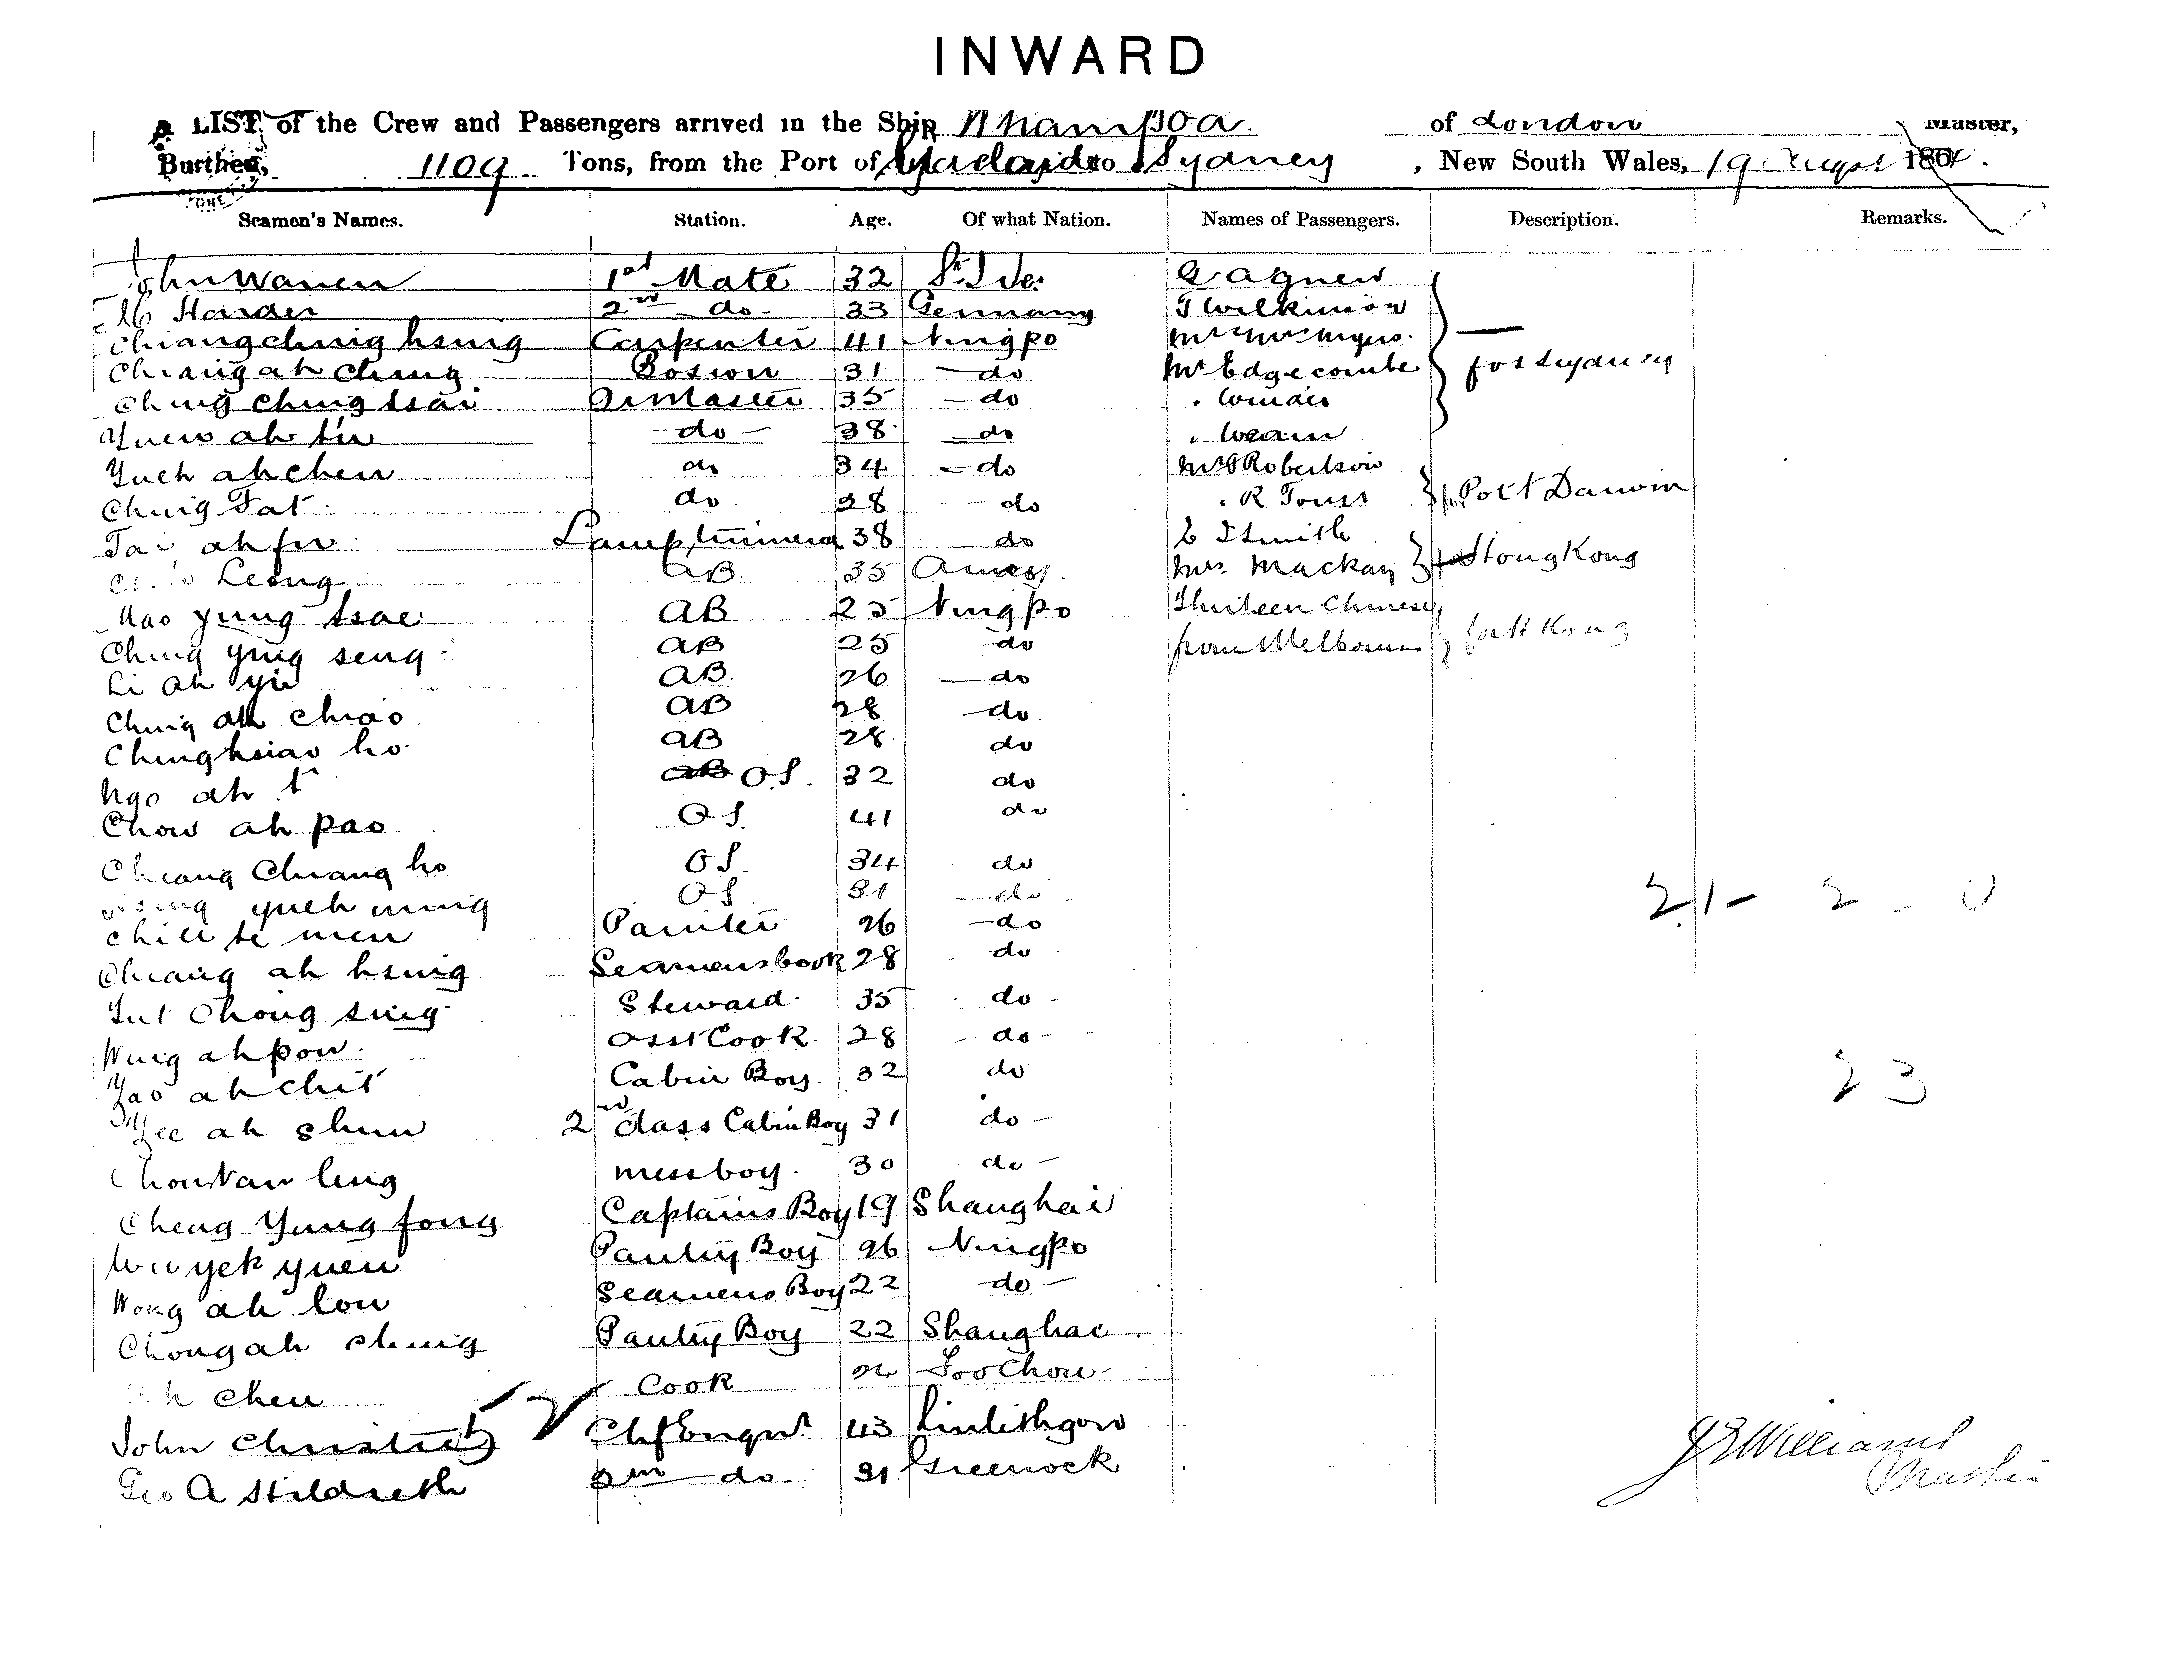 INWARD
A LIST of the Crew and Passengers arrived in the Ship Whampoa of London Master,
Burthen, 1109 Tons, from the Port of Adelaide to Sydney , New South Wales, 19 August 18
Seamen's Names. Station. Age. Of what Nation. Names of Passengers. Description. Remarks.
John Warren 1st Mate 32 St Ives Agnew
Harder 2nd do 33 Germany Wilkinson
Chiang ching hsing Carpenter 41 Ningpo Mr Mrs Myers
Chiang ah ching Bosion 31 do Mr Edgecombe for Sydney
Ching ching tsai Qr Master 35 do
Yuew ah do 38 do
Yueh ah chen do 34 do Robertson
Ching Fat do 28 do R Port Darwin
Tai ah fu Lamp trimmer 38 do Smith
Leong AB 35 Amoy Mrs Mackay Hong Kong
Mao yung tsae AB 25 Ningpo Thirteen Chinese
Ching ying seng AB 25 do from Melbourne for H Kong
Li ah yu AB 26 do
Ching ah chiao AB 28 do
Ching hsiao ho AB 28 do
Ngo ah AB OS. 32 do
Chow ah pao OS. 41 do
Chiang Chiang ho OS. 34 do
yueh ming OS 31 do 21 - 2 - 0
men Painter 26 do
Chiang ah hsing Seamens cook 28 do
Chong sing Steward 35 do
Wing ah pow Asst Cook 28 do
Yao ah chit Cabin Boy 32 do 23
Yee ah shun 2nd class Cabin Boy 31 do
ling messboy. 30 do
Cheng Yung fong Captains Boy 19 Shanghai
Wu yek yuen Pantry Boy 26 Ningpo
Wong ah lou Seamens Boy 22 do
Chong ah ching Pantry Boy 22 Shanghae
Ah chen Cook Foo Chow
John Christie Chf Engnr 43 Linlithgow J E Williams
Geo A Hildreth 2nd do 31 Greenock Master